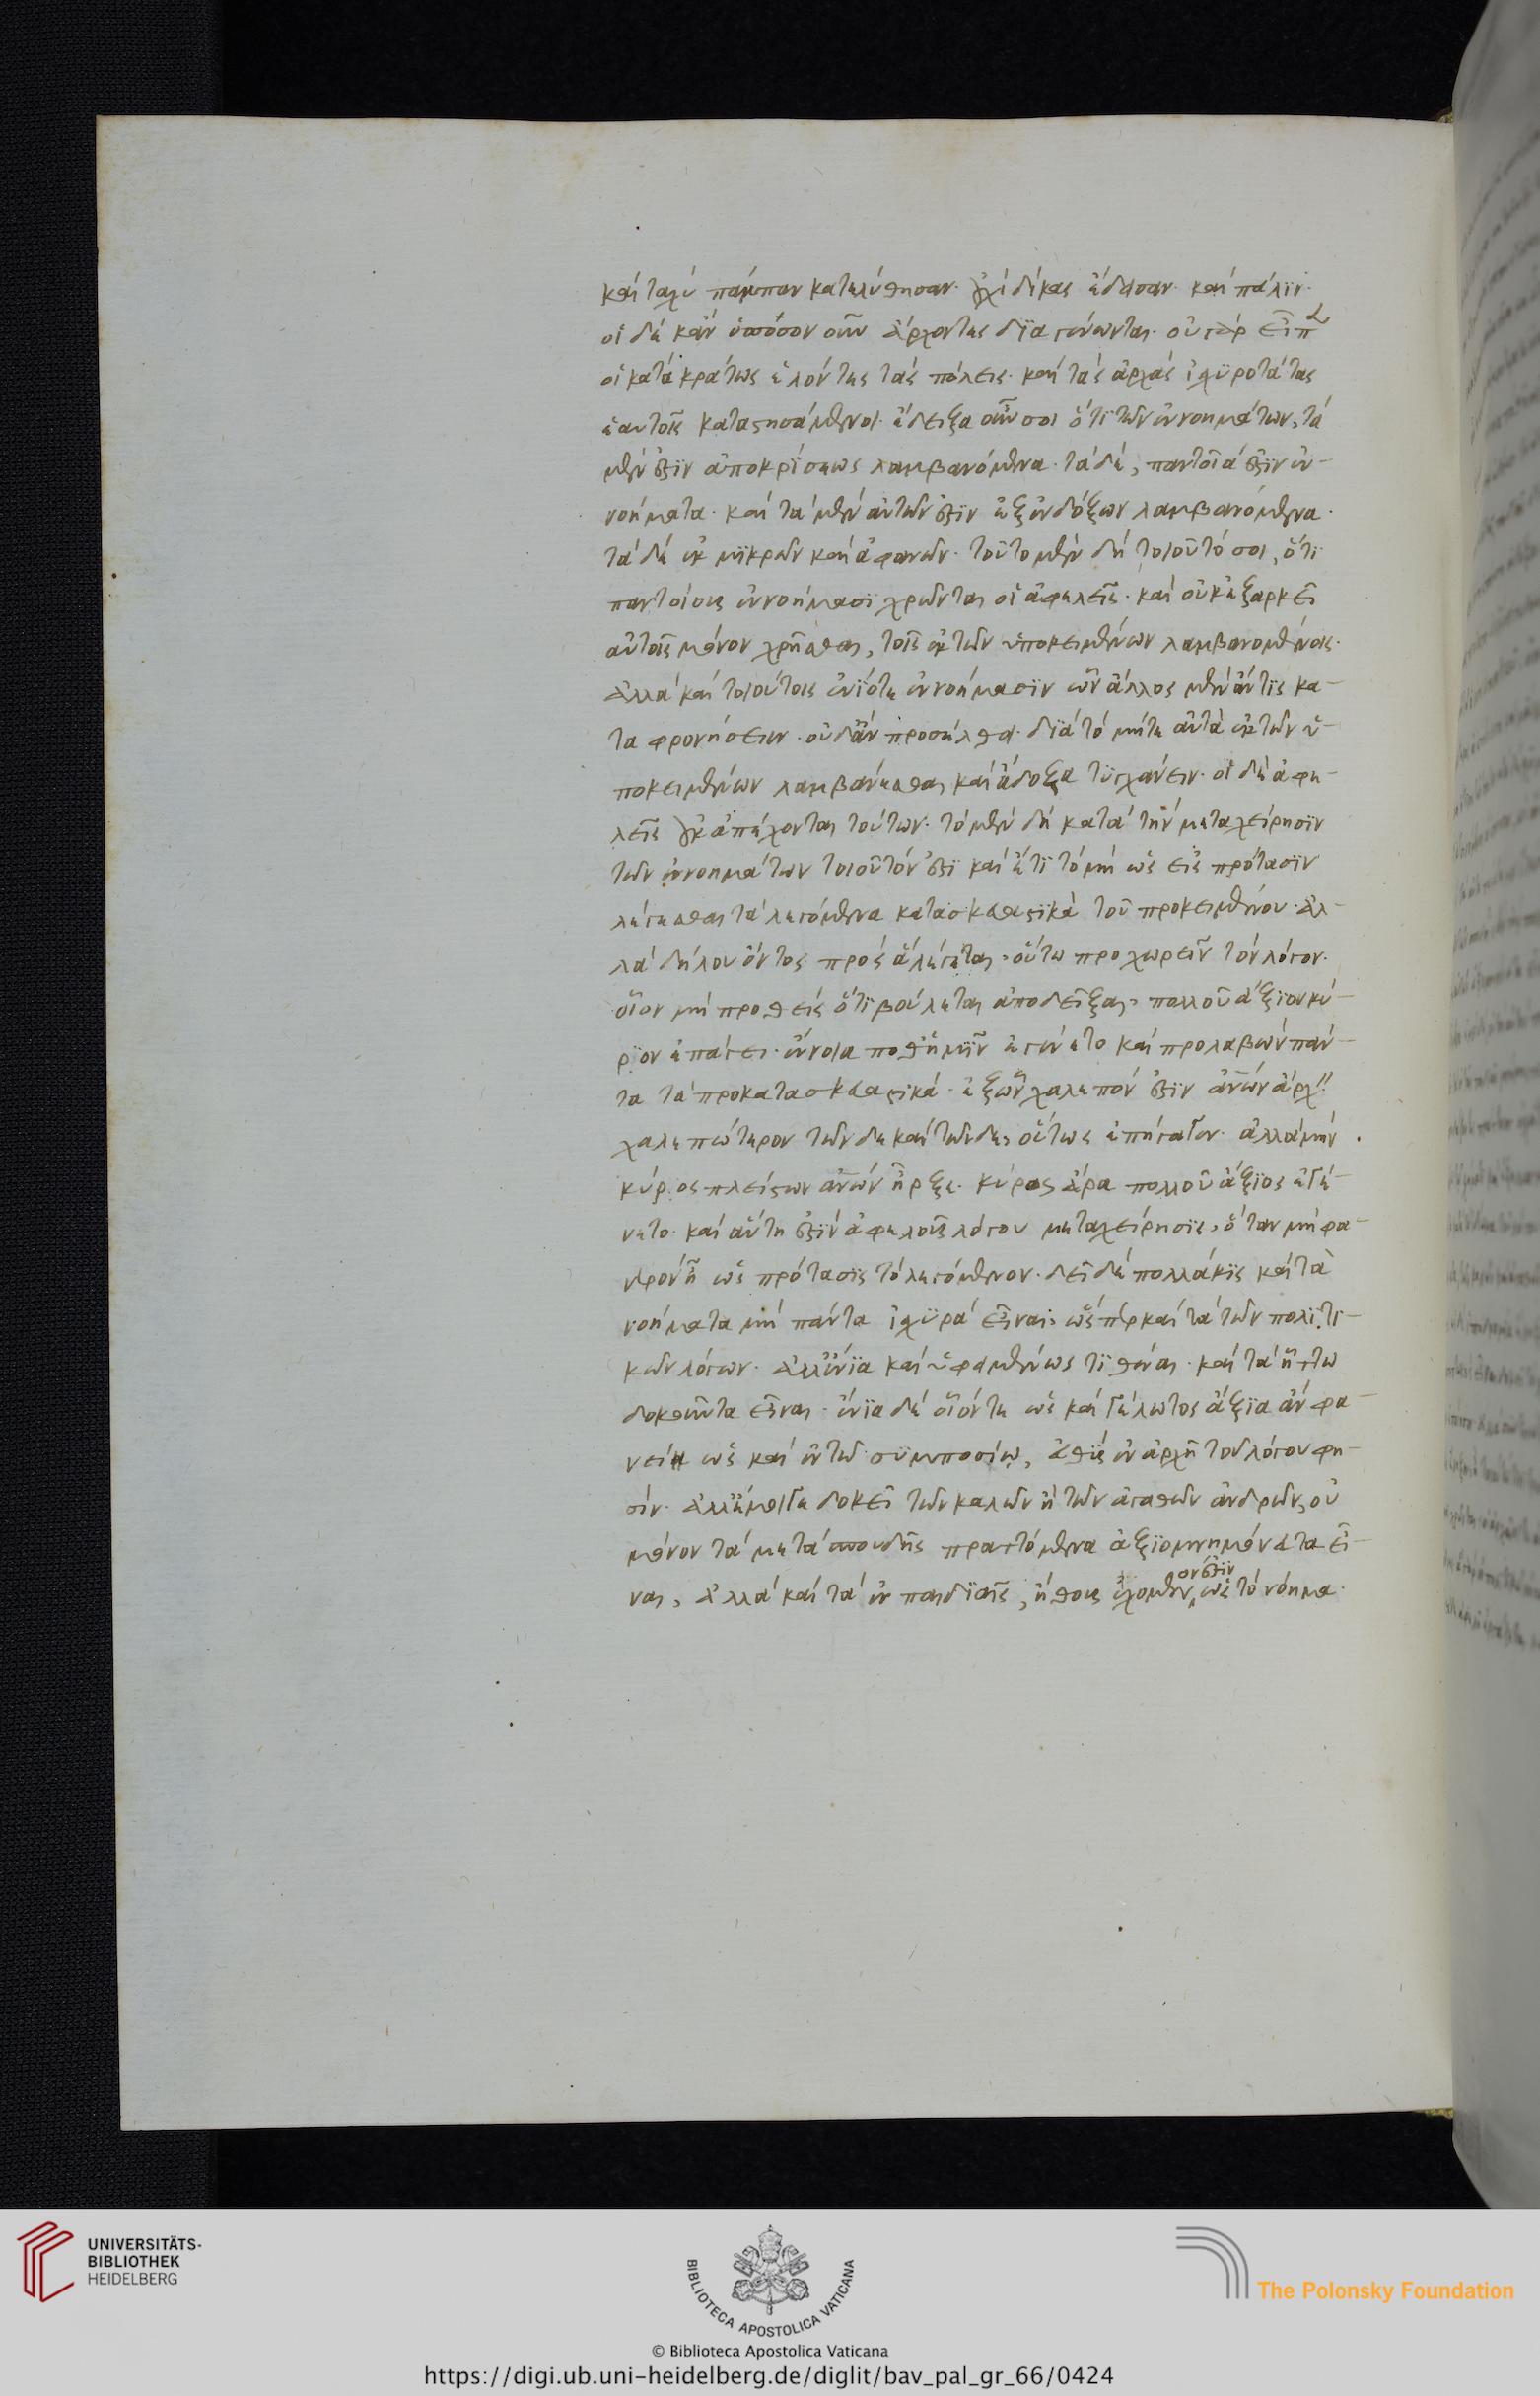 καὶ ταχὺ πάμπαν κατελύθησαν. οὐχὶ δίκας ἔδοσαν. καὶ πάλιν.
οἱ δὲ κἂν ὁπόσον οὖν ἄρχοντες διαγένωνται. οὐ γὰρ εἶπ
οἱ κατὰ κράτος ἑλόντες τὰς πόλεις. καὶ τὰς ἀρχὰς ἰσχυροτάτας
ἑαυτοῖς καταστησάμενοι. ἔδειξα οὖν σοι ὅτι τῶν ἐννοημάτων, τὰ
μέν ἐστιν ἀποκρίσεως λαμβανόμενα. τὰ δὲ, παντοῖά ἐστιν ἐν-
νοήματα. καὶ τὰ μὲν αὐτῶν ἐστιν ἐξ ἐνδόξων λαμβανόμενα.
τὰ δὲ ἐκ μικρῶν καὶ ἀφανῶν. τοῦτο μὲν δὴ τοιοῦτό σοι, ὅτι
παντοίοις ἐννοήμασι χρῶνται οἱ ἀφελεῖς. καὶ οὐκ ἐξαρκεῖ
αὐτοῖς μόνον χρῆσθαι, τοῖς ἐκ τῶν ὑποκειμένων λαμβανομένοις.
ἀλλὰ καὶ τοιούτοις ἐνίοτε ἐννοήμασιν ὧν ἄλλος μὲν ἄν τις κα-
ταφρονήσειεν. οὐδ' ἂν προσέλθοι διὰ τὸ μήτε αὐτὰ ἐκ τῶν ὑ-
ποκειμένων λαμβάνεσθαι καὶ ἄδοξα τυγχάνειν. οἱ δὲ ἀφε-
λεῖς οὐκ ἀπέχονται τούτων. τὸ μὲν δὴ κατὰ τὴν μεταχείρησιν
τῶν ἐννοημάτων τοιοῦτόν ἐστι καὶ ἔτι τὸ μὴ ὡς εἰς πρότασιν
λέγεσθαι τὰ λεγόμενα κατασκευαστικὰ τοῦ προκειμένου. ἀλ-
λὰ δήλου ὄντος πρὸς ἃ λέγεται, οὕτω προχωρεῖν τὸν λόγον.
οἷον μὴ προθεὶς ὅτι βούλεται ἀποδεῖξαι, πολλοῦ ἄξιον κύ-
ριον ἐπάγει. ἔννοιά ποθ' ἡμῖν ἐγένετο καὶ προλαβὼν πάν-
τα τὰ προκατασκευαστικά. ἐξ ὧν χαλεπόν ἐστιν ἀν̅ων ἄρχ
χαλεπώτερον τῶνδε καὶ τῶνδε, οὕτως ἐπήγαγεν. ἀλλὰ μὴν
κύρος πλείστων ἀν̅ων ἦρξε. κύρος ἄρα πολλοῦ ἄξιος ἐγέ-
νετο. καὶ αὕτη ἐστὶν ἀφελοῦς λόγου μεταχείρησις, ὅταν μὴ φα-
νερὸν ᾖ ὡς πρότασις τὸ λεγόμενον. δεῖ δὲ πολλάκις καὶ τὰ
νοήματα μὴ πάντα ἰσχυρὰ εἶναι, ὥσπερ καὶ τὰ τῶν πολιτι-
κῶν λόγων. ἀλλ' ἔνια καὶ ὑφειμένως τιθέναι. καὶ τὰ ἥττω
δοκοῦντα εἶναι. ἔνια δὲ οἷόν τε ὡς καὶ γέλωτος ἄξια ἂν φα-
νείη ὡς καὶ ἐν τῷ συμποσίῳ, εὐθὺς ἐν ἀρχῇ τοῦ λόγου φη-
σίν. ἀλλ' ἔμοιγε δοκεῖ τῶν καλῶν ἢ τῶν ἀγαθῶν ἀνδρῶν, οὐ
μόνον τὰ μετὰ σπουδῆς πραττόμενα ἀξιομνημόνευτα εἶ-
ναι, ἀλλὰ καὶ τὰ ἐν παιδιαῖς, ἤθους ἐχόμεν<sup>όν ἐστιν</sup> ὡς τὸ νόημα.
UNIVERSITÄTS-
BIBLIOTHEK
HEIDELBERG
BIBLIOTECA APOSTOLICA VATICANA
The Polonsky Foundation
© Biblioteca Apostolica Vaticana
https://digi.ub.uni-heidelberg.de/diglit/bav_pal_gr_66/0424